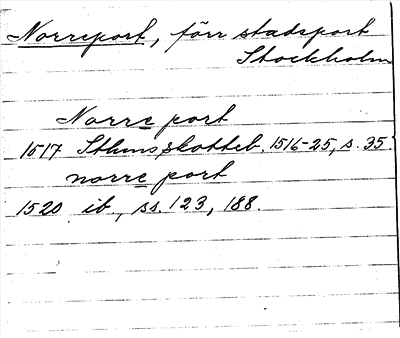 Norreport, förr stadsport
Stockholm
Norre port
1517 Sthms skotteb. 1516-25, s. 35
norre port
1520 ib., ss. 123, 188.